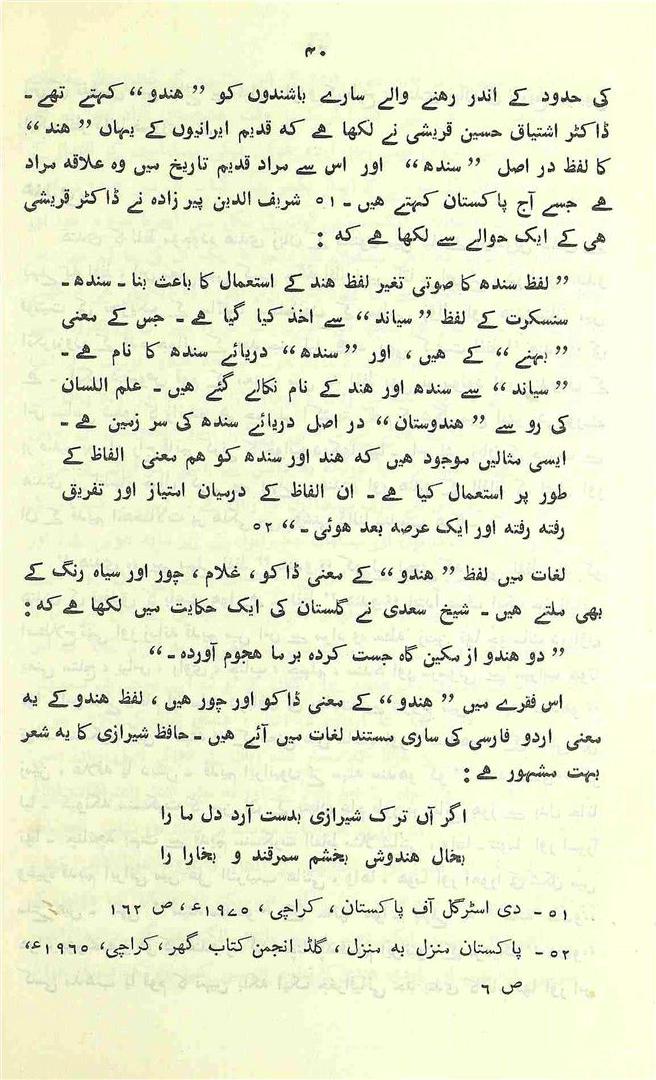 ۴۰
کی حدود کے اندر رهنے والے سارے باشندوں کو ” هندو “ کہتے تھے ۔
ڈاکٹر اشتیاق حسین قریشی نے لکھا هے که قدیم ایرانیوں کے یہاں ” هند “
کا لفظ در اصل ” سندھ “ اور اس سے مراد قدیم تاریخ میں وه علاقه مراد
هے جسے آج پاکستان کہتے هیں ۔ ۵۱ شریف الدین پیر زاده نے ڈاکٹر قریشی
هی کے ایک حوالے سے لکھا هے که :
” لفظ سندھ کا صوتی تغیر لفظ هند کے استعمال کا باعث بنا ۔ سندھ ۔
سنسکرت کے لفظ ” سیاند “ سے اخذ کیا گیا هے ۔ جس کے معنی
” بہنے “ کے هیں ، اور ” سندھ “ دریائے سندھ کا نام هے ۔
” سیاند “ سے سندھ اور هند کے نام نکالے گئے هیں ۔ علم اللسان
کی رو سے ” هندوستان “ در اصل دریائے سندھ کی سر زمین هے ۔
ایسی مثالیں موجود هیں که هند اور سندھ کو هم معنی الفاظ کے
طور پر استعمال کیا هے ۔ ان الفاظ کے درمیان امتیاز اور تفریق
رفته رفته اور ایک عرصه بعد هوئی ۔ “ ۵۲
لغات میں لفظ ” هندو “ کے معنی ڈاکو ، غلام ، چور اور سیاه رنگ کے
بھی ملتے هیں ۔ شیخ سعدی نے گلستان کی ایک حکایت میں لکھا هے که :
” دو هندو از مکین گاه جست کرده بر ما هجوم آورده ۔ “
اس فقرے میں ” هندو “ کے معنی ڈاکو اور چور هیں ، لفظ هندو کے یه
معنی اردو فارسی کی ساری مستند لغات میں آئے هیں ۔ حافظ شیرازی کا یه شعر
بہت مشہور هے :
اگر آں ترک شیرازی بدست آرد دل ما را
بخال هندوش بخشم سمرقند و بخارا را
۵۱ ۔ دی اسٹرگل آف پاکستان ، کراچی ، ۱۹۷۵ء ، ص ۱۶۲
۵۲ ۔ پاکستان منزل به منزل ، گلڈ انجمن کتاب گھر ، کراچی ، ۱۹۶۵ء ،
ص ۶